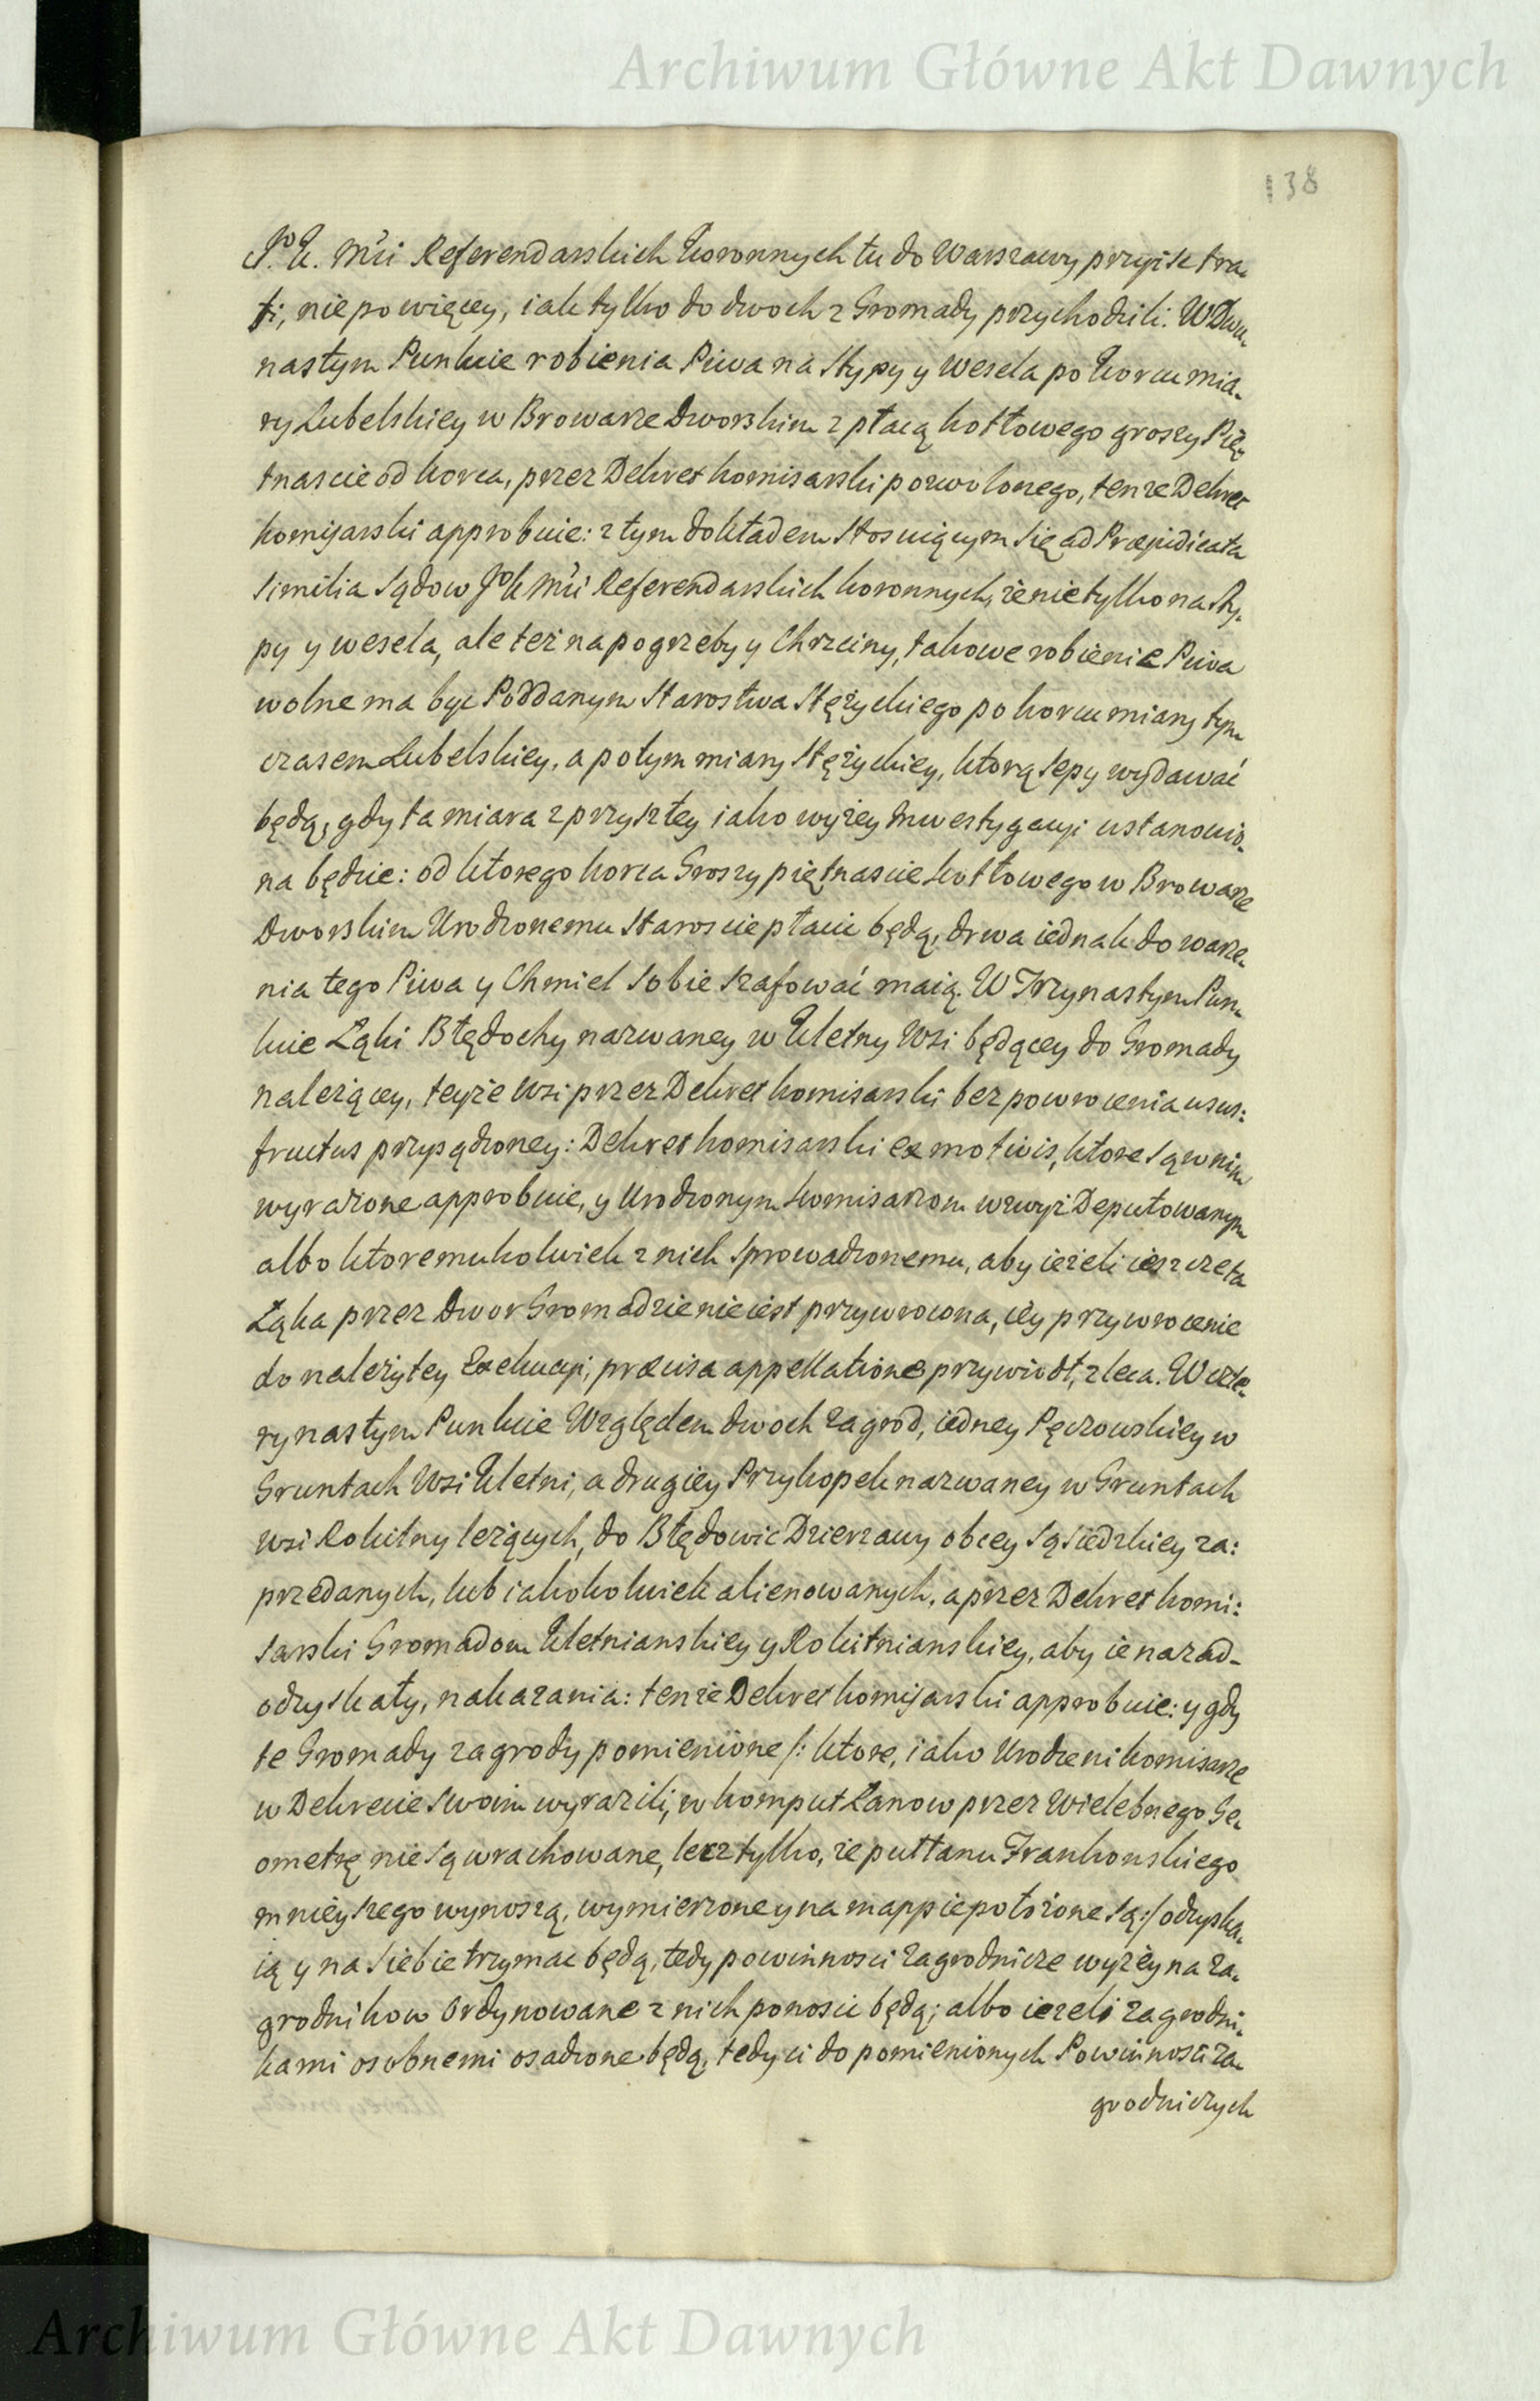 Archiwum Główne Akt Dawnych
138
J. K. Mći Referendarskich Koronnych tu do Warszawy przyiść tra-
fi, nie powięcey, iak tylko do dwoch z Gromady przychodzili. W Dwu-
nastym Punkcie robienia Piwa na Stypy y Wesela po Korcu mia-
ry Lubelskiey w Browarze Dworskim z płacą kotłowego groszy Pię-
tnascie od korca, przez Dekret komisarski pozwolonego, tenze Dekret
komisarski approbuie: z tym dokładem stosuiącym się ad Præjudicata
similia Sądow JK Mći Referendarskich koronnych, ze nie tylko na Sty-
py y wesela, ale też na pogrzeby y Chrzciny, takowe robienie Piwa
wolne ma byc Poddanym Starostwa Stężyckiego po korcu miary tym
czasem Lubelskiey, a potym miary Stężyckiey, ktorą sepy wydawać
będą, gdy ta miara z przyszłey iako wyżey Inwestygacyi ustanowio-
na będzie: od ktorego korca Groszy piętnascie kotłowego w Browarze
Dworskim Urodzonemu Staroscie płacic będą, drwa iednak do warze-
nia tego Piwa y Chmiel sobie szafować maią. W Trzynastym Pun-
kcie Łąki Błędochy nazwaney w Kletny Wsi będącey do Gromady
nalezącey, teyże Wsi przez Dekret komisarski bez powrocenia usus:
fructus przysądzoney: Dekret komisarski ex motivis, ktore są w nim
wyrażone approbuie, y Urodzonym komisarzom wzwyż Deputowanym
albo ktoremukolwiek z nich sprowadzonemu, aby ieżeli ieszcze ta
Łąka przez Dwor Gromadzie nie iest przywrocona, iey przywrocenie
do należytey Exekucyi, præcisa appellatione przywiodł, zleca. W czte-
rynastym Punkcie Względem dwoch zagrod, iedney Pęczowskiey w
Gruntach Wsi Kletni, a drugiey Przykopek nazwaney w Gruntach
wsi Rokitny leżących, do Błędowic Dzierzawy obcey sąsiedzkiey za:
przedanych, lub iakokolwiek alienowanych, a przez Dekret komi:
sarski Gromadom Kletnianskiey y Rokitnianskiey, aby ie nazad-
odzyskały, nakazania: tenze Dekret komisarski approbuie: y gdy
te Gromady zagrody pomienione /: ktore, iako Urodzeni komisarze
w Dekrecie swoim wyrazili, w komput Łanow przez Wielebnego Ge-
ometrę nie są wrachowane, lecz tylko, ze puł łanu Frankonskiego
mnieyszego wynoszą, wymierzone y na mappie położone są:/ odzyska-
ią y na siebie trzymac będą, tedy powinnosci zagrodnicze wyżey na za-
grodnikow ordynowane z nich ponosic będą; albo iezeli zagrodni-
kami osobnemi osadzone będą, tedy ci do pomienionych Powinnosci za-
grodniczych
Archiwum Główne Akt Dawnych